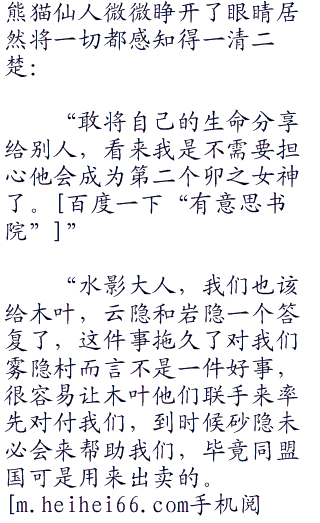 熊猫仙人微微睁开了眼睛居
然将一切都感知得一清二
楚：
“敢将自己的生命分享
给别人，看来我是不需要担
心他会成为第二个卯之女神
了。[百度一下“有意思书
院”]”
“水影大人，我们也该
给木叶，云隐和岩隐一个答
复了，这件事拖久了对我们
雾隐村而言不是一件好事，
很容易让木叶他们联手来率
先对付我们，到时候砂隐未
必会来帮助我们，毕竟同盟
国可是用来出卖的。
[m.heihei66.com手机阅